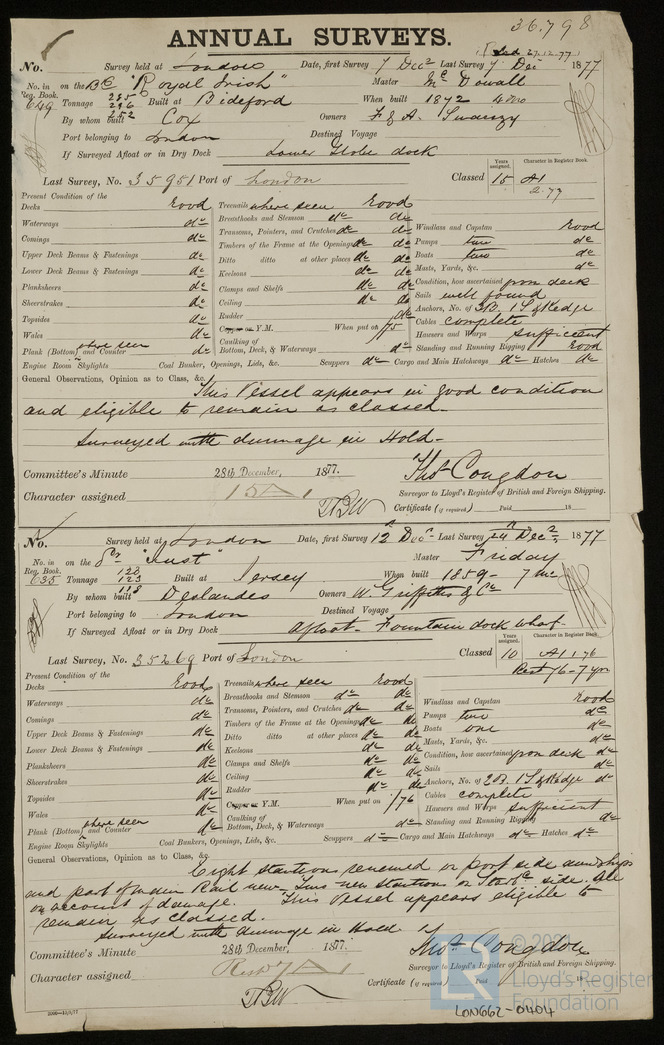 36,798
ANNUAL SURVEYS.
No. Survey held at London Date, first Survey 7 Decr Last Survey 7 Decr 1877
No. in Reg. Book. on the Bq "Royal Irish" Master McDowall
649 Tonnage 296 Built at Bideford When built 1872
By whom built Cox Owners F & A. Swanzy
Port belonging to London Destined Voyage
If Surveyed Afloat or in Dry Dock Lower Globe dock
Years assigned. Character in Register Book.
Last Survey, No. 35951 Port of London Classed 15 A1
2.77
Present Condition of the
Decks Good
Waterways do
Comings do
Upper Deck Beams & Fastenings do
Lower Deck Beams & Fastenings do
Planksheers do
Sheerstrakes do
Topsides do
Wales do
Plank (Bottom) and Counter where seen do
Engine Room Skylights
Treenails where seen Good
Breasthooks and Stemson do do
Transoms, Pointers, and Crutches do do
Timbers of the Frame at the Openings do do
Ditto ditto at other places do do
Keelsons do do
Clamps and Shelfs do do
Ceiling do do
Rudder do
Copper or Y.M. When put on /75
Caulking of Bottom, Deck, & Waterways do
Coal Bunker, Openings, Lids, &c. Scuppers do Cargo and Main Hatchways do Hatches do
Windlass and Capstan Good
Pumps two do
Boats two do
Masts, Yards, &c. do
Condition, how ascertained from deck
Sails well found
Anchors, No. of 3B. 1S & Kedge
Cables complete
Hawsers and Warps sufficient
Standing and Running Rigging Good
General Observations, Opinion as to Class, &c.
This Vessel appears in good condition
and eligible to remain as classed.
Surveyed with dunnage in Hold.
Committee's Minute 28th December, 1877.
Character assigned 15 A1
Thos Congdon
Surveyor to Lloyd's Register of British and Foreign Shipping.
Certificate (if required) Paid 18
No. Survey held at London Date, first Survey 12 Decr Last Survey 24 Decr 1877
No. in Reg. Book. on the Sr "Just" Master Friday
635 Tonnage 128 123 118 Built at Jersey When built 1859 - 7 mo
By whom built Deslandes Owners W. Griffiths & Co
Port belonging to London Destined Voyage
If Surveyed Afloat or in Dry Dock Afloat - Fountain dock wharf
Years assigned. Character in Register Book.
Last Survey, No. 35269 Port of London Classed 10 A1 1.76
Rest 76-7 yrs
Present Condition of the
Decks Good
Waterways do
Comings do
Upper Deck Beams & Fastenings do
Lower Deck Beams & Fastenings do
Planksheers do
Sheerstrakes do
Topsides do
Wales do
Plank (Bottom) and Counter where seen do
Engine Room Skylights
Treenails where seen Good
Breasthooks and Stemson do do
Transoms, Pointers, and Crutches do do
Timbers of the Frame at the Openings do do
Ditto ditto at other places do do
Keelsons do do
Clamps and Shelfs do do
Ceiling do do
Rudder do do
Copper or Y.M. When put on /76
Caulking of Bottom, Deck, & Waterways do
Coal Bunkers, Openings, Lids, &c. Scuppers do Cargo and Main Hatchways do Hatches do
Windlass and Capstan Good
Pumps two do
Boats one do
Masts, Yards, &c. do
Condition, how ascertained from deck do
Sails do
Anchors, No. of 2B. 1S & Kedge do
Cables complete
Hawsers and Warps sufficient
Standing and Running Rigging do
General Observations, Opinion as to Class, &c.
Eight stantions renewed on port side amidships
and part of Main Rail new. Two new stantions on Starbd side. All
on account of damage. This Vessel appears eligible to
remain as classed.
Surveyed with dunnage in Hold
Committee's Minute 28th December, 1877.
Character assigned Rest 7 A1
Thos Congdon
Surveyor to Lloyd's Register of British and Foreign Shipping.
Certificate (if required) Paid 18
© 2021
Lloyd's Register
Foundation
LON662-0404